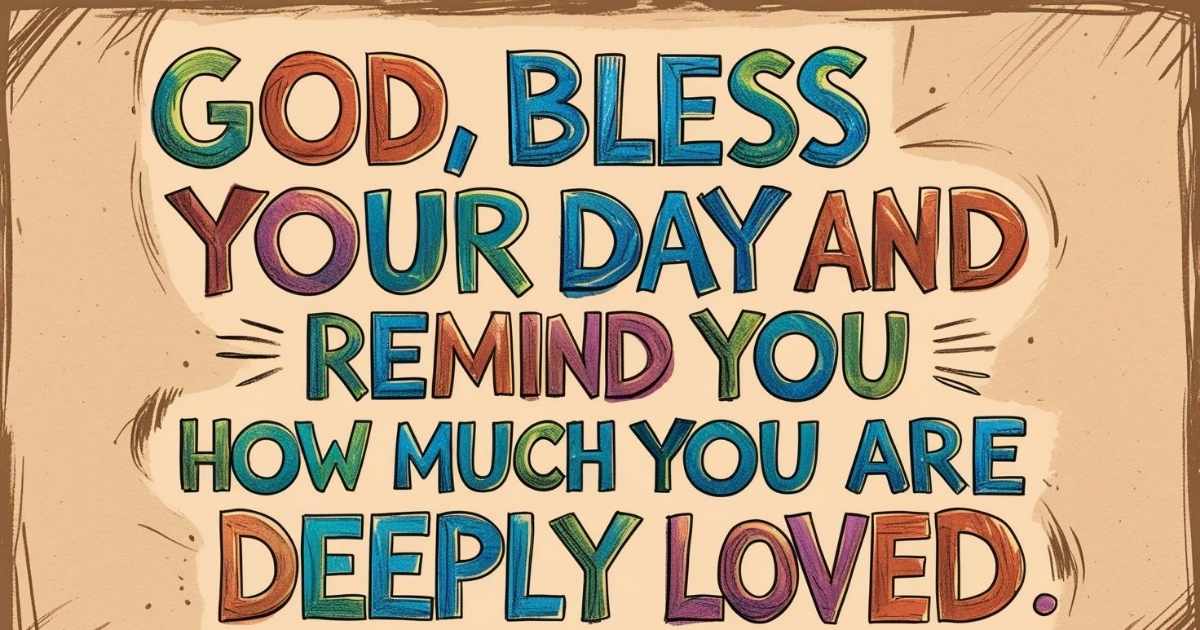 GOD, BLESS
YOUR DAY AND
REMIND YOU
HOW MUCH YOU ARE
DEEPLY LOVED.